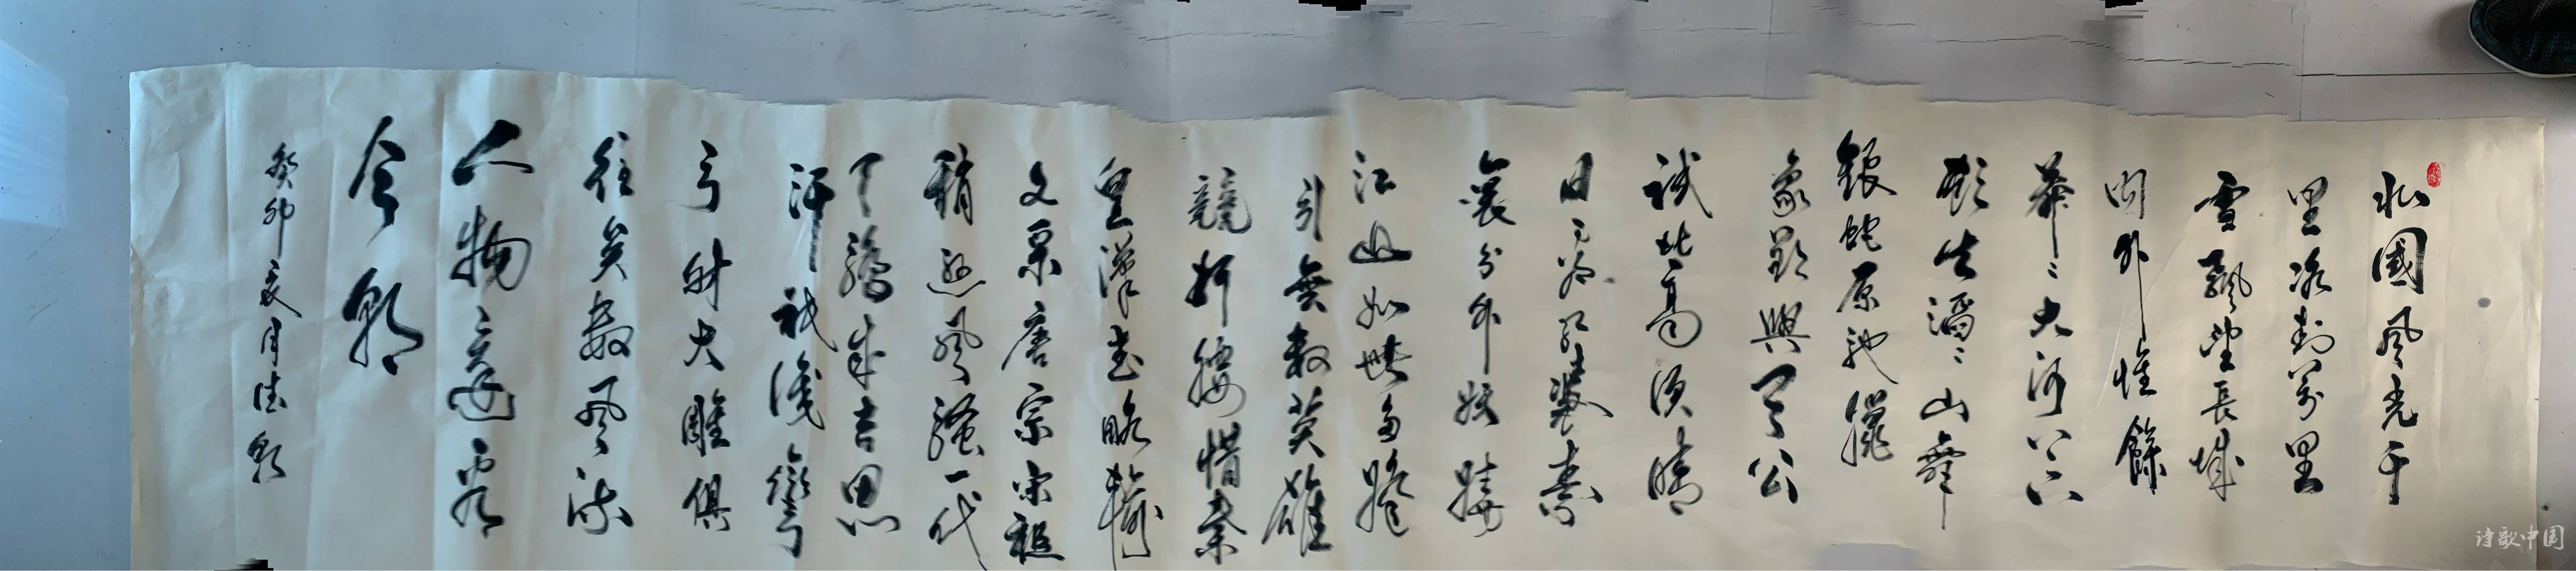 北國風光千
里冰封萬里
雪飄望長城
内外惟餘
莽々大河上下
頓失滔々山舞
銀蛇原馳蠟
象欲與天公
試比高須晴
日看紅裝素
裹分外妖嬈
江山如此多嬌
引無數英雄
競折腰惜秦
皇漢武略輸
文采唐宗宋祖
稍遜風騷一代
天驕成吉思
汗祇識彎
弓射大雕俱
往矣數風流
人物還看
今朝
癸卯夏月
诗歌中国